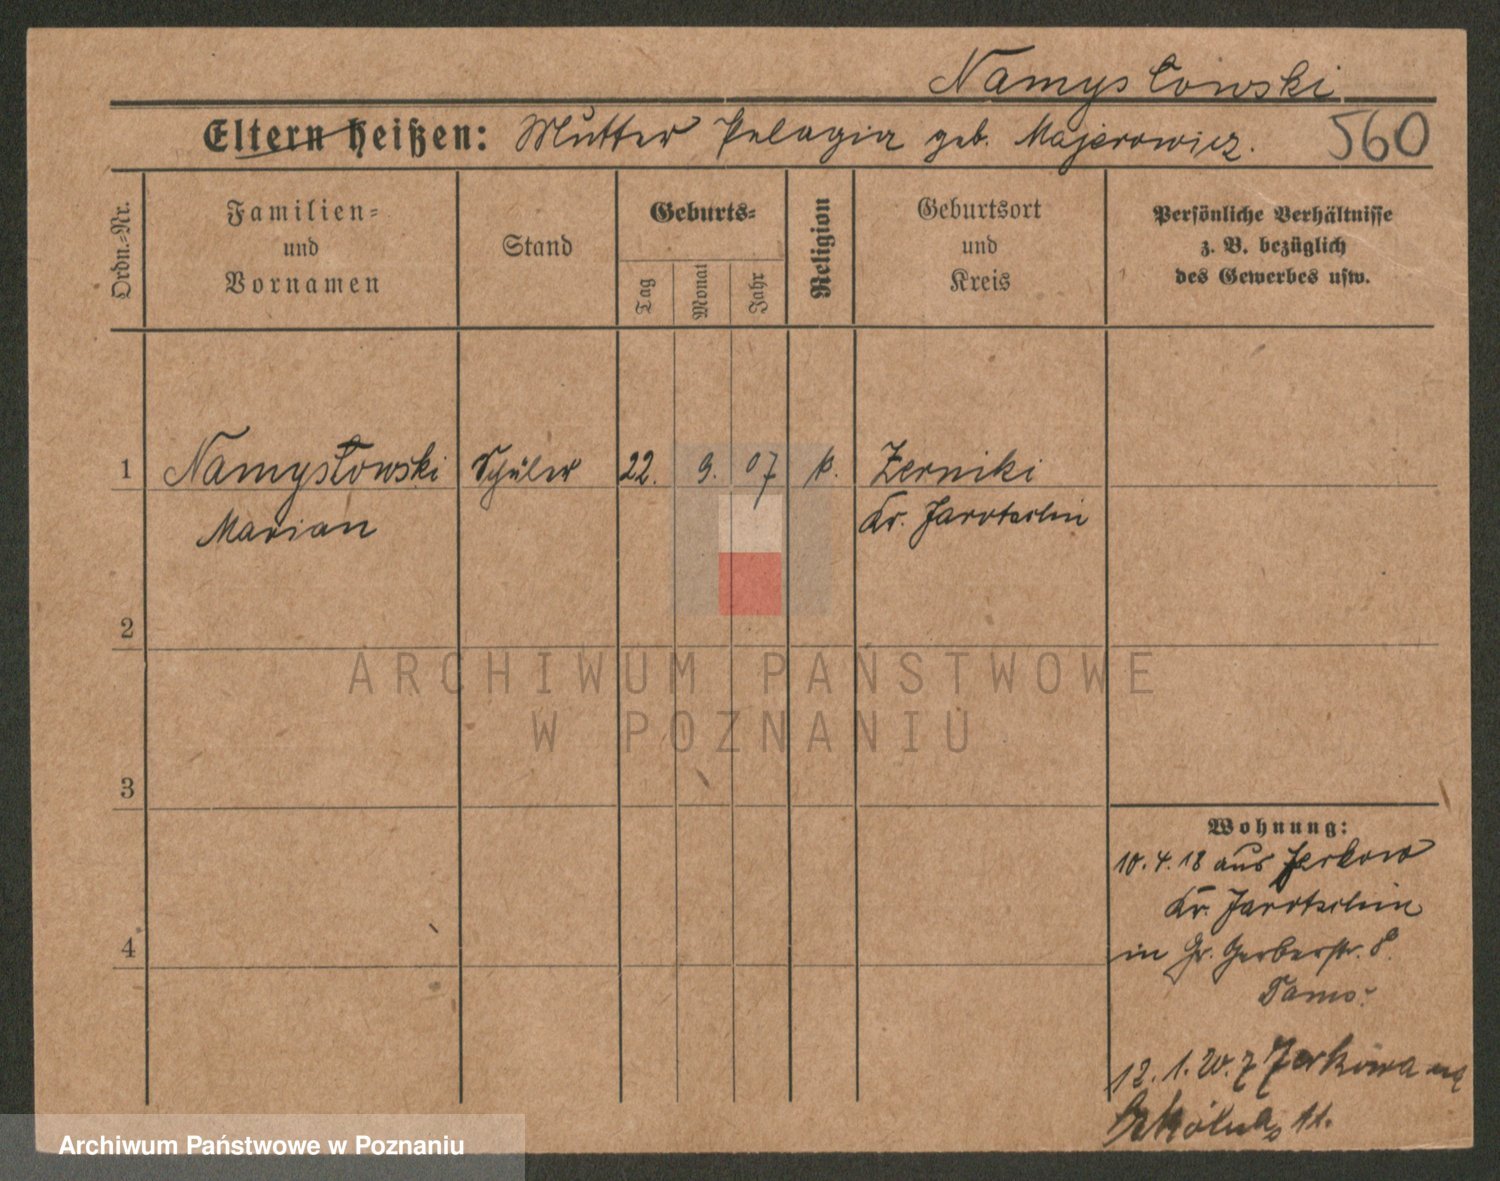 Namysłowski
Eltern heißen: Mutter Pelagia geb. Majerowicz. 560
Ordn.-Nr.
Familien-
und
Vornamen
Stand
Geburts-
Tag
Monat
Jahr
Religion
Geburtsort
und
Kreis
Persönliche Verhältnisse
z. B. bezüglich
des Gewerbes usw.
1 Namysłowski Schüler 22. 9. 07 k. Zerniki
Marian Kr. Jarotschin
2
ARCHIWUM PAŃSTWOWE
W POZNANIU
3
Wohnung:
10.4.18 aus Jerkow
Kr. Jarotschin
4
in Gr. Gerberstr. 8.
12.1.20. z Jerkowa na
Szkólną 11.
Archiwum Państwowe w Poznaniu